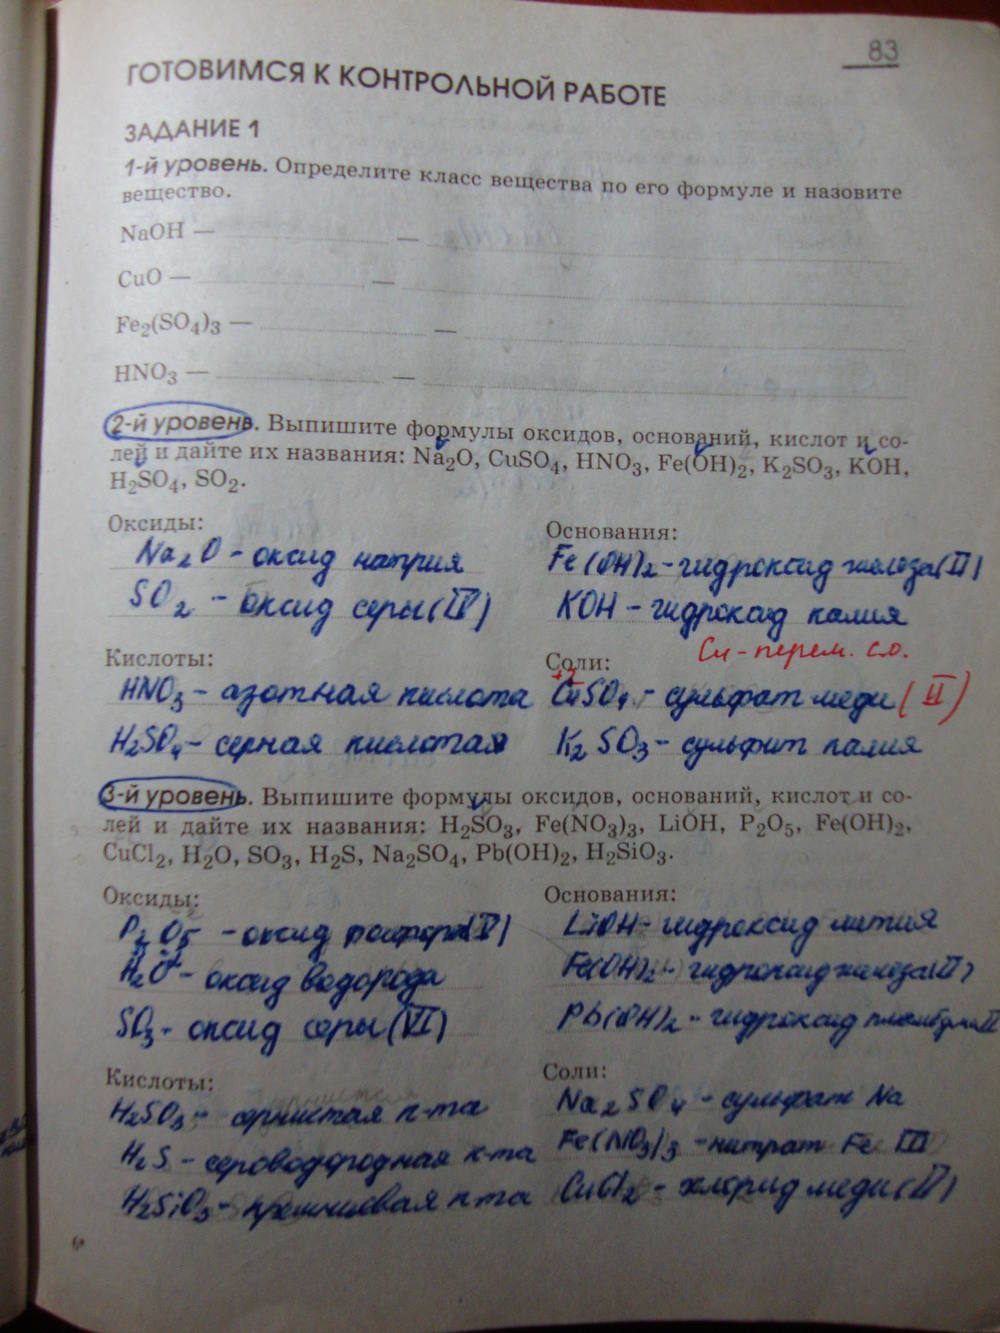 83
ГОТОВИМСЯ К КОНТРОЛЬНОЙ РАБОТЕ
ЗАДАНИЕ 1
1-й уровень. Определите класс вещества по его формуле и назовите
вещество.
NaOH — —
CuO — —
Fe₂(SO₄)₃ — —
HNO₃ — —
2-й уровень. Выпишите формулы оксидов, оснований, кислот и со-
лей и дайте их названия: Na₂O, CuSO₄, HNO₃, Fe(OH)₂, K₂SO₃, KOH,
H₂SO₄, SO₂.
Оксиды:
Na₂O - оксид натрия
SO₂ - оксид серы (IV)
Основания:
Fe(OH)₂ - гидроксид железа (II)
KOH - гидроксид калия
Кислоты:
HNO₃ - азотная кислота
H₂SO₄ - серная кислотая
Cu - перем. с.о.
Соли:
+2
CuSO₄ - сульфат меди (II)
K₂SO₃ - сульфит калия
3-й уровень. Выпишите формулы оксидов, оснований, кислот и со-
лей и дайте их названия: H₂SO₃, Fe(NO₃)₃, LiOH, P₂O₅, Fe(OH)₂,
CuCl₂, H₂O, SO₃, H₂S, Na₂SO₄, Pb(OH)₂, H₂SiO₃.
Оксиды:
P₂O₅ - оксид фосфора (V)
H₂O - оксид водорода
SO₃ - оксид серы (VI)
Основания:
LiOH - гидроксид лития
Fe(OH)₂ - гидроксид железа (II)
Pb(OH)₂ - гидроксид
Кислоты:
H₂SO₃ - сернистая к-та
H₂S - сероводородная к-та
H₂SiO₃ - кремниевая к-та
Соли:
Na₂SO₄ - сульфат Na
Fe(NO₃)₃ - нитрат Fe III
CuCl₂ - хлорид меди (II)